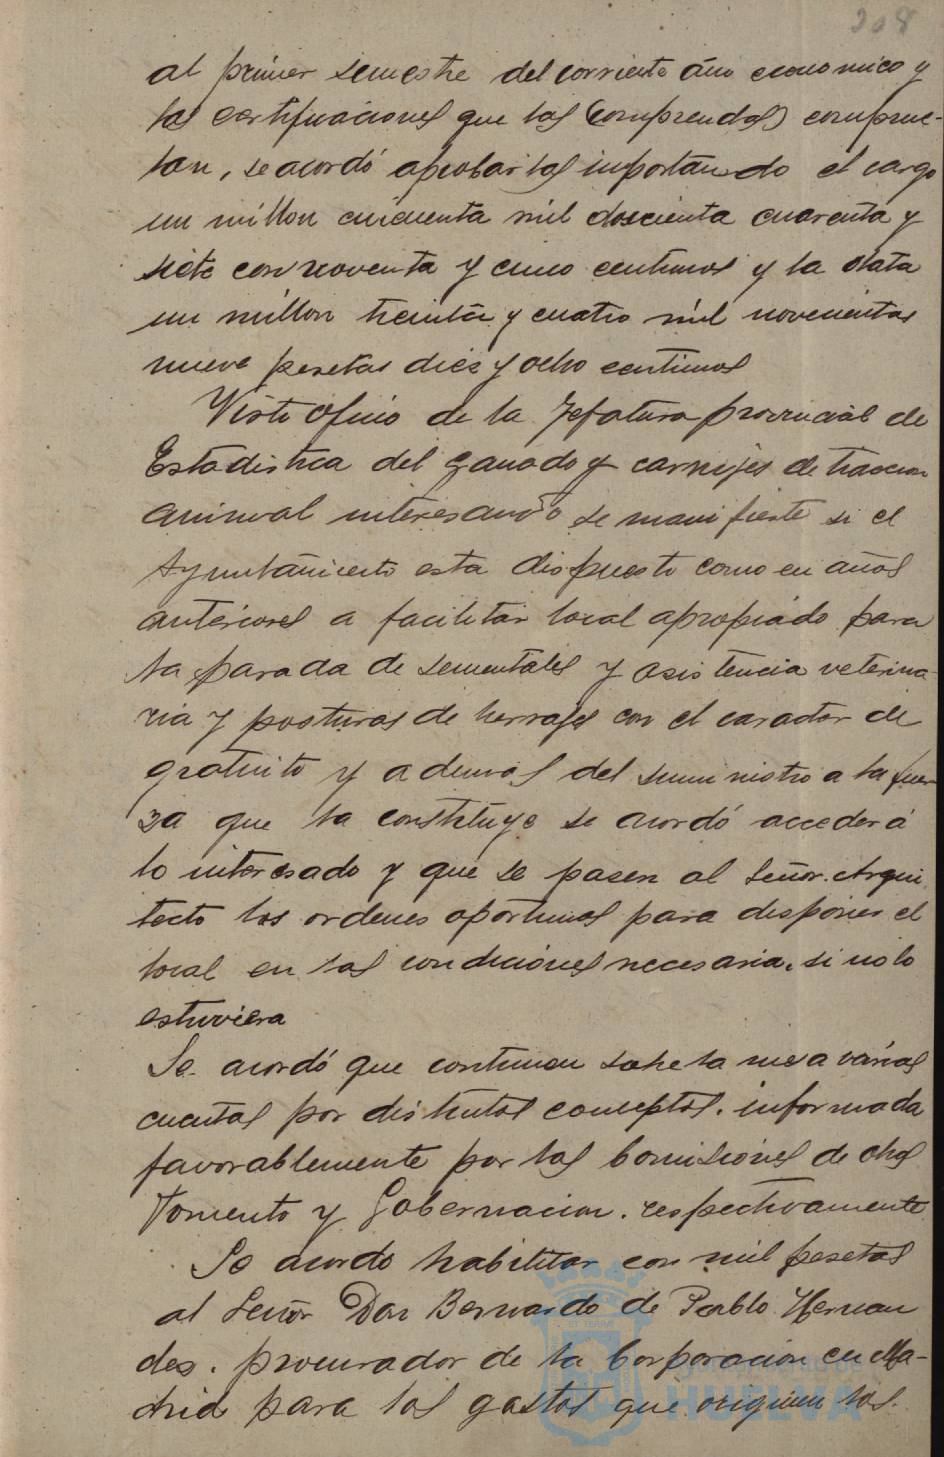 208
al primer semestre del corriente año economico y
las certificaciones que las (comprendas) comprue-
tan, se acordó aprobarlas importando el cargo
un millon cincuenta mil doscienta cuarenta y
siete con noventa y cinco centimos y la data
un millon treinta y cuatro mil novecientas
nueve pesetas diez y ocho centimos
Visto oficio de la Jefatura provincial de
Estadistica del ganado y carruajes de traccion
animal interesando se manifieste si el
Ayuntamiento esta dispuesto como en años
anteriores a facilitar local apropiado para
la parada de sementales y asistencia veterina-
ria y posturas de herrajes con el caracter de
gratuito y ademas del suministro a la fuer-
za que la constituye se acordó acceder á
lo interesado y que se pasen al Señor Arqui
tecto las ordenes oportunas para disponer el
local en las condiciones necesaria, si no lo
estuviera
Se acordó que continuen sobre la mesa varias
cuentas por distintos conceptos. informada
favorablemente por las Comisiones de
Fomento y Gobernacion. respectivamente
Se acordo habilitar con mil pesetas
al Señor Don Bernardo de Pablo Hernan
des. procurador de la Corporacion en Ma-
drid para los gastos que originen las.
Ayuntamiento de
HUELVA